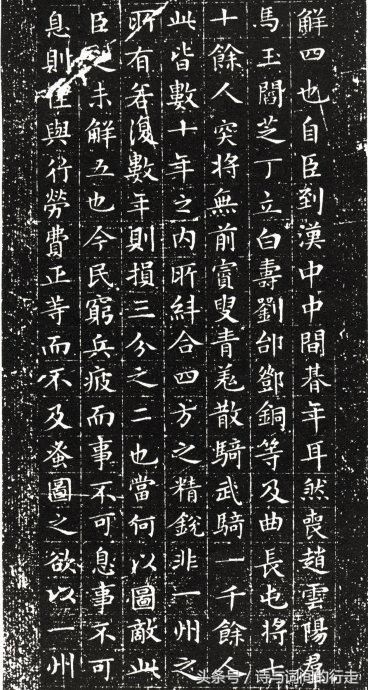 觧四也自臣到漢中中間朞年耳然喪趙雲陽羣
馬王閻芝丁立白壽劉郃鄧銅等及曲長屯將七
十餘人突將無前賨叟青羌散騎武騎一千餘人
此皆數十年之内所糾合四方之精銳非一州之
所有若復數年則損三分之二也當何以圖敵此
臣之未解五也今民窮兵疲而事不可息事不可
息則住與行勞費正等而不及蚤圖之欲以一州
头条号 / 诗与词间的行走